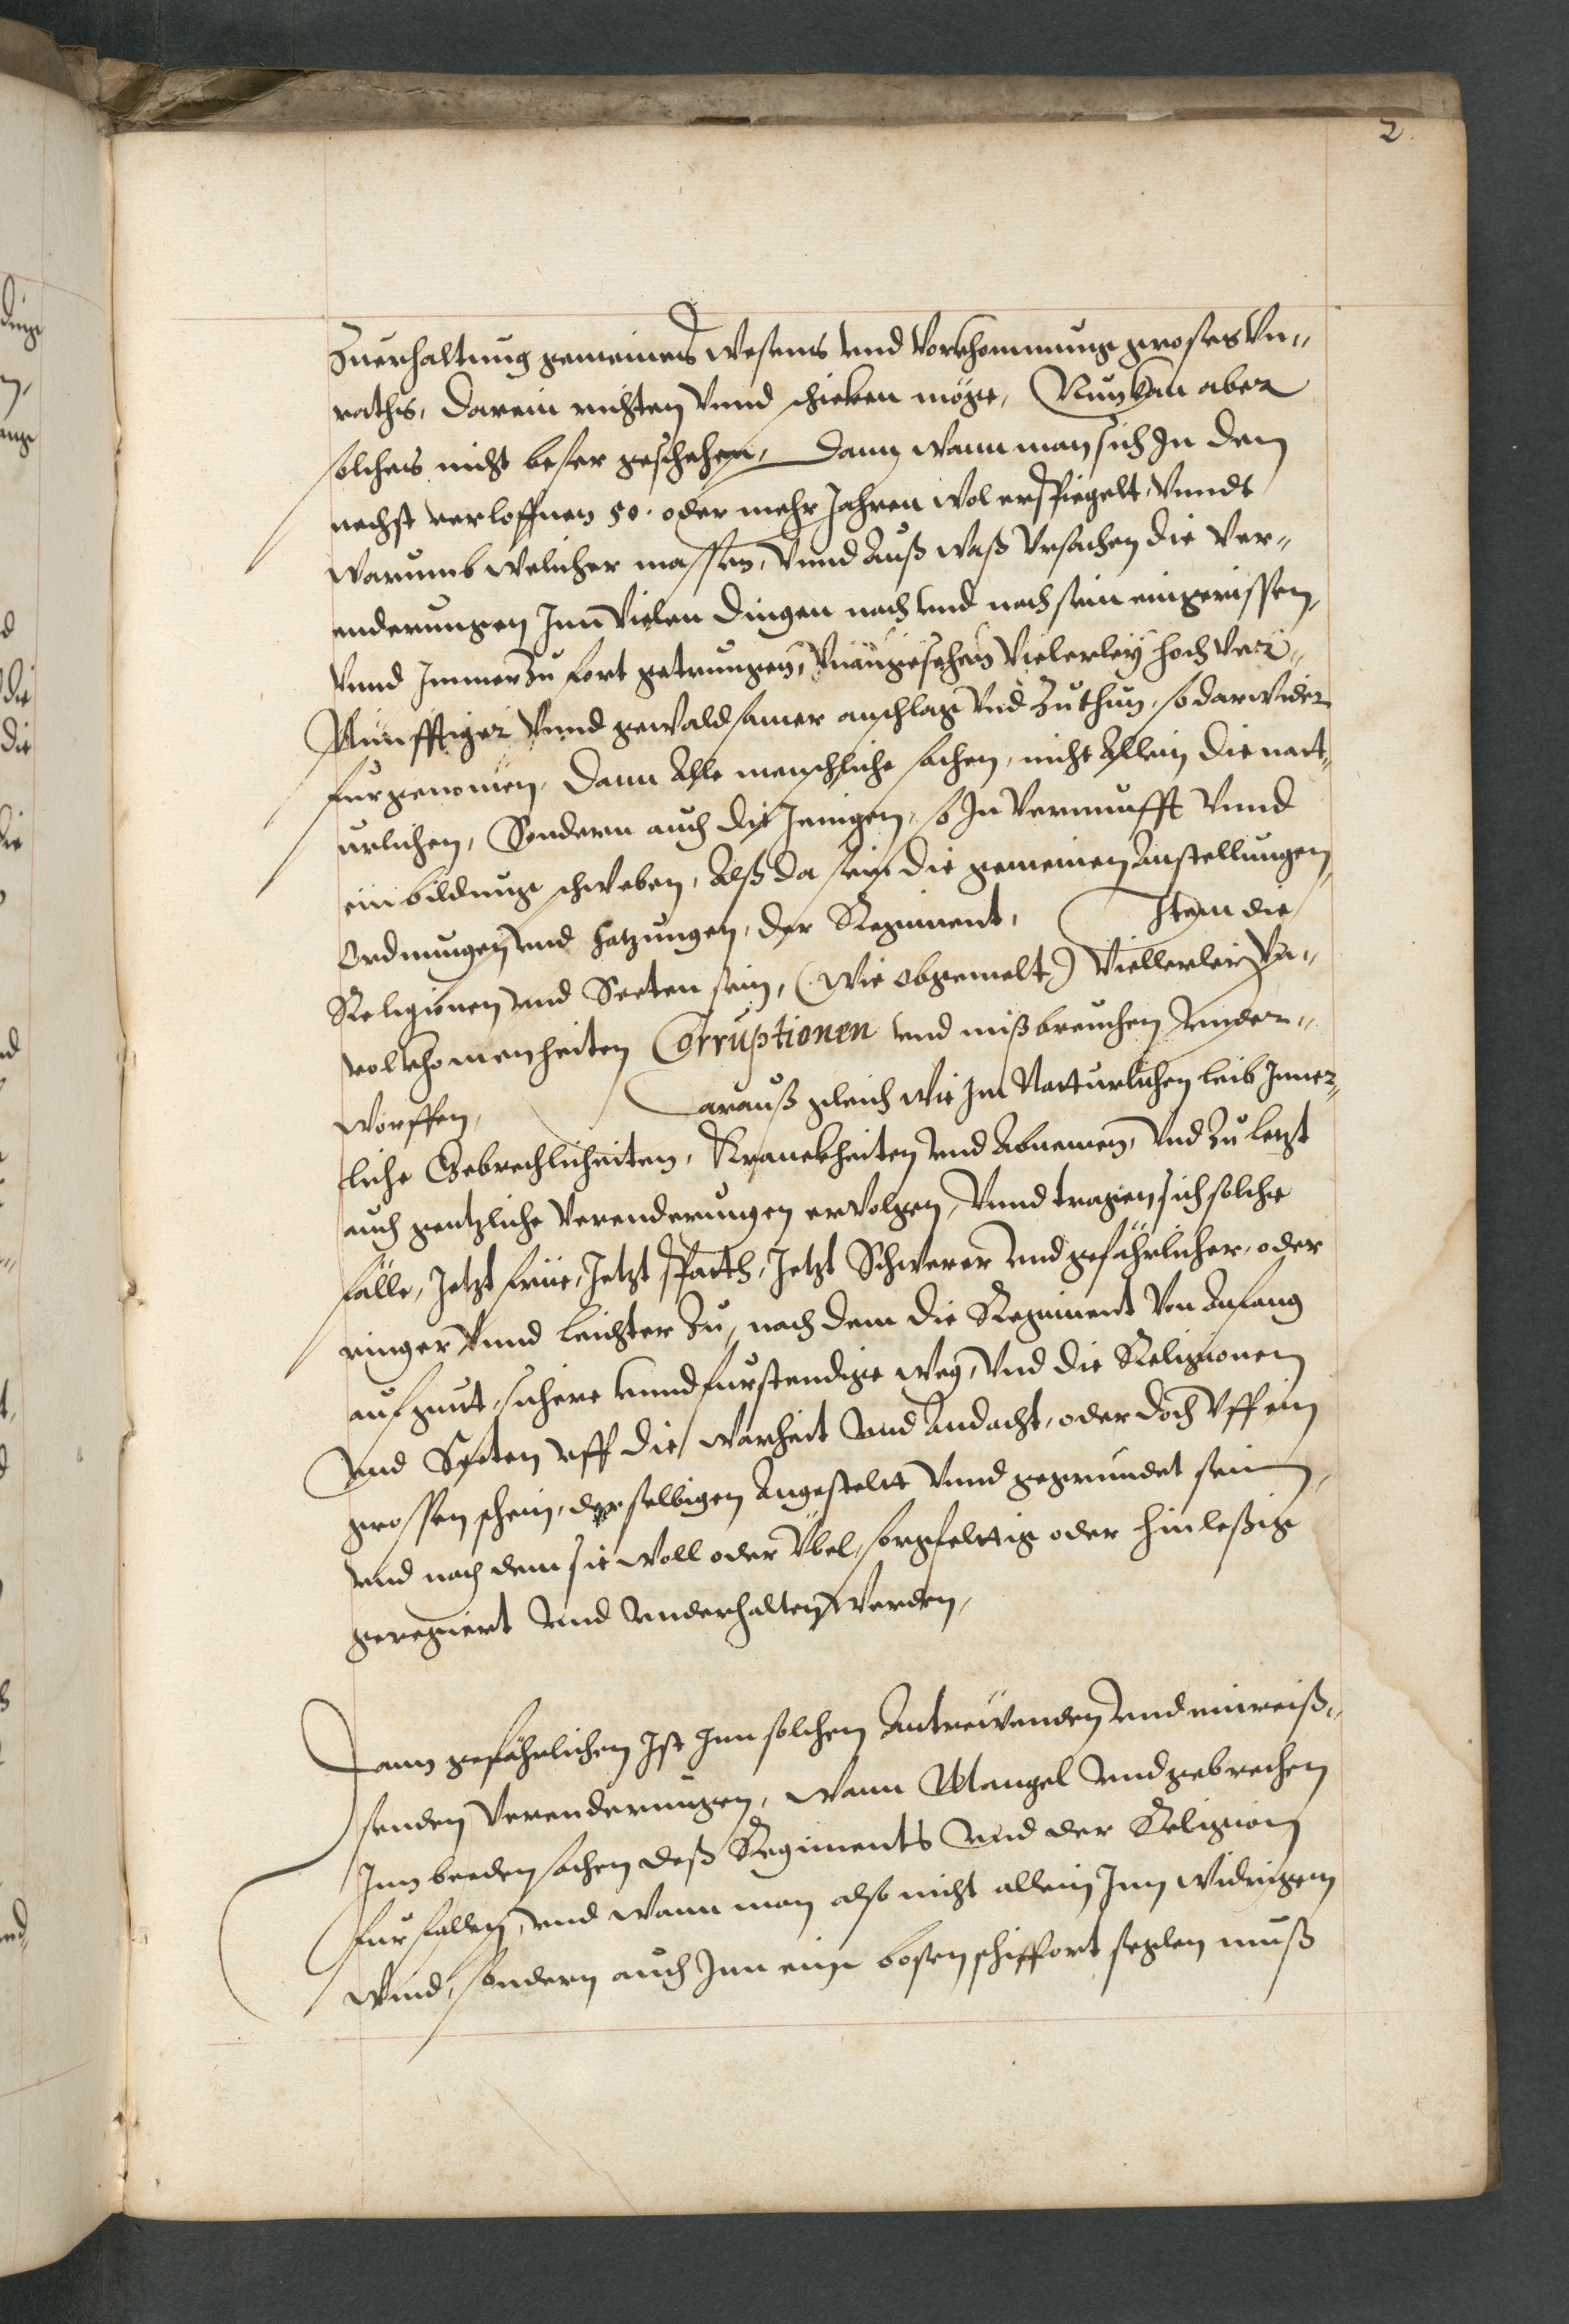 2.
Zuerhaltung gemeines wesens vnd vorkhommung groses Vn„
raths, darein richten vnnd schicken möge, Nun kan aber
solches nicht besser geschehen, Dann wann man sich In den
nechst verloffnen 50. oder mehr Jahren wol erspiegelt, Vnndt
warumb welicher massen, Vnnd auß waß Vrsachen die Ver„
enderungen Inn vielen dingen nach vnd nach sein eingerissen,
Vnnd Immerzu fort getrungen, Vnangesehen vielerley hoch Ver„
Nunfftiger Vnnd gewaldsamer anschlag Vnd Zuthun, so darwider
furgenomen, Dann Alle menschliche sachen, nicht Allein die natt„
urlichen, Sondern auch die Jenigen, so In vernunfft Vnnd
einbildung schweben, Alß da sein die gemeinen Anstellungen,
Ordnungen vnd satzungen, der Regiment, Item die
Religionen vnd Secten sein, (wie obgemelt) Viellerley Vn„
volkhomenheiten Corruptionen vnd mißbreuchen vnder„
worffen, Darauß gleich wie Im Natturlichen leib Inner„
liche Gebrechlicheiten, Kranckheiten vnd Abnemen, Vnd Zu letzt
auch gentzliche verenderungen ervolgen, Vnnd tragen sich solche
fälle, Jetzt früe, Jetzt spatth, Jetzt Schwerer vnd gefährlicher, oder
ringer Vnnd leichter Zu, nach dem die Regiment von Anfang
auf guut, sichere vnnd furstendige weg, Vnd die Religionen
Vnd Secten vff die warheit vnd Andacht, oder doch Vff ein
grossen schein, derselbigen Angestelt Vnnd gegrundet sein,
vnd nach dem sie woll oder Übel, sorgfelttig oder hinleßig
geregiert vnd vnderhalten werden,
Dann gefährlichen Ist Inn solchen Antreuenden vnd einreiß„
senden Verenderungen, wann Mangel vnd gebrechen
Inn beeden sachen deß Regiments vnd der Religion
furfallen, vnd wann man also nicht allein Inn widrigem
wind, sondern auch Inn eine bosen schiffort seglen muß